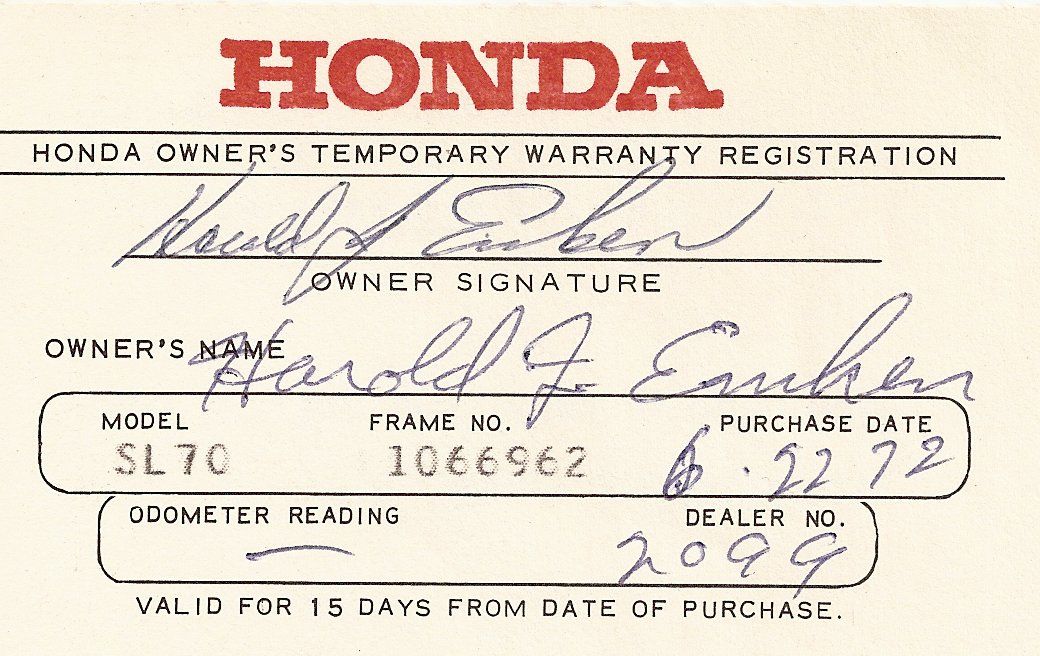 HONDA
HONDA OWNER'S TEMPORARY WARRANTY REGISTRATION
Harold J Emken
OWNER SIGNATURE
OWNER'S NAME Harold J. Emken
MODEL FRAME NO. PURCHASE DATE
SL70 1066962 6.22 72
ODOMETER READING DEALER NO.
— 2099
VALID FOR 15 DAYS FROM DATE OF PURCHASE.